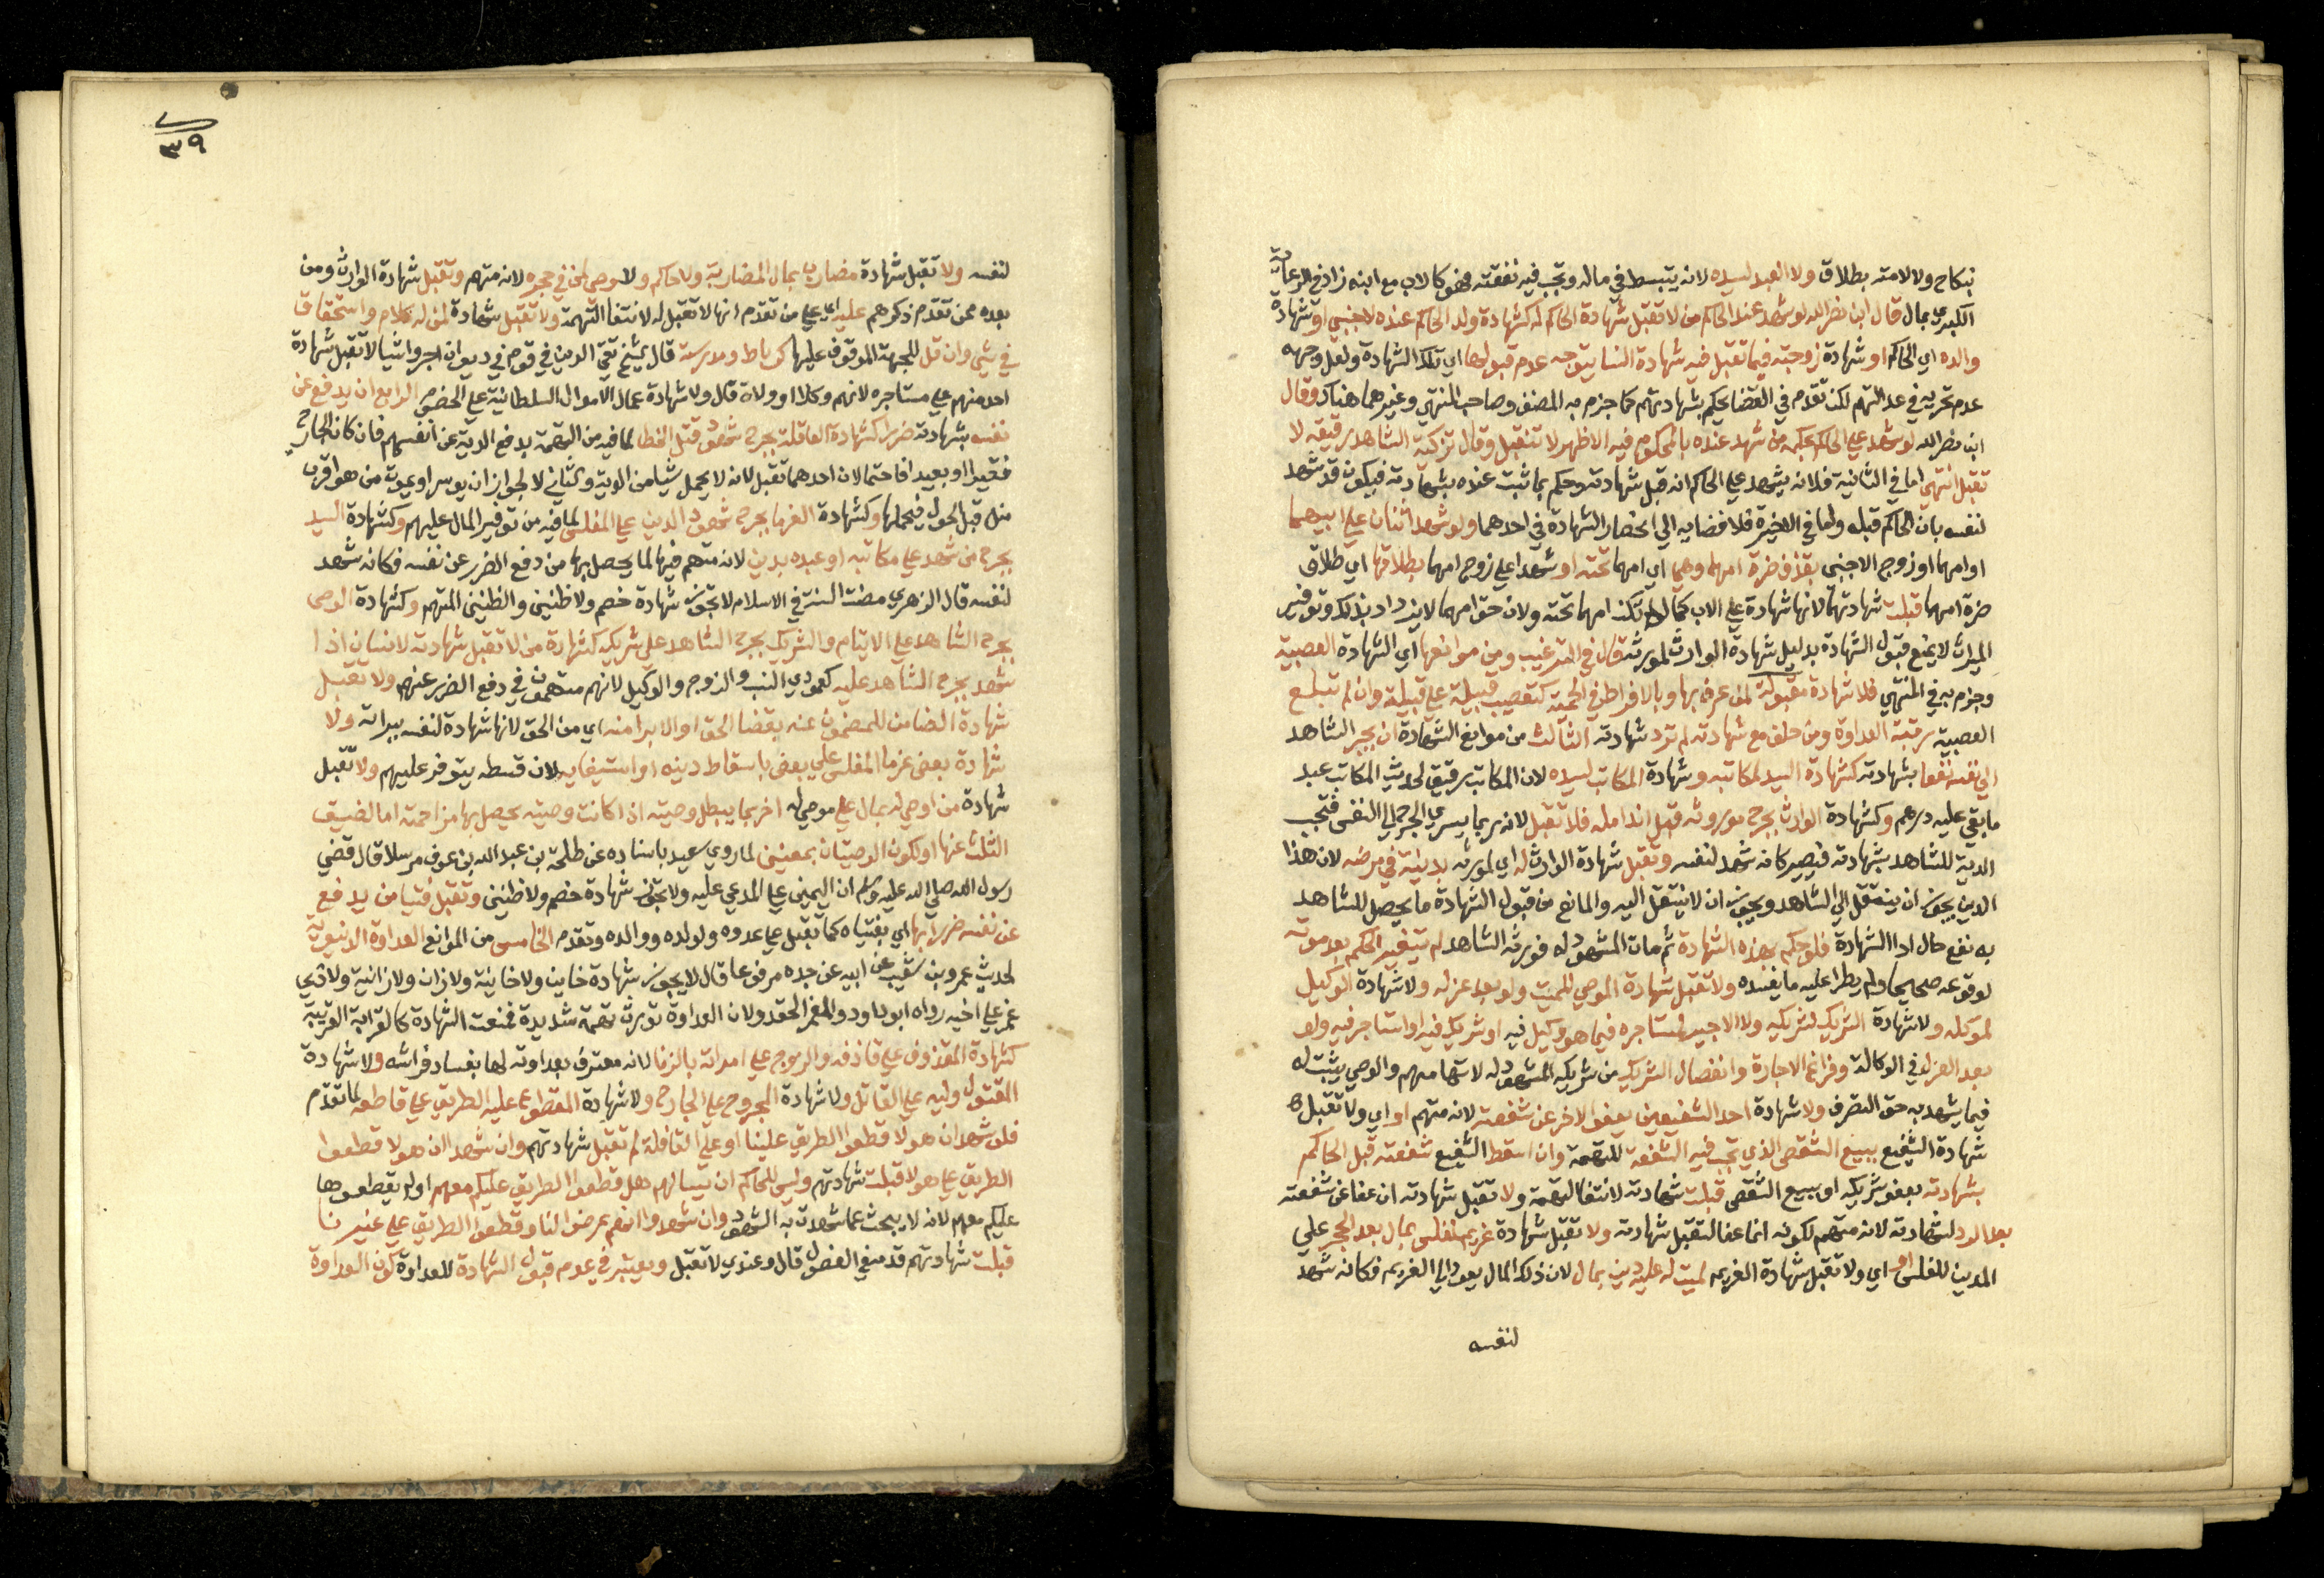 بنكاح ولا لامته بطلاق ولا العبد لسيده لانه يتبسط في ماله وتجب فيه نفقته فهو كالاب مع ابنه زاد في الرعاية
الكبرى بمال قال ابن نصر الله لو شهد عند الحاكم من لا تقبل شهادة الحاكم له كشهادة ولد الحاكم عنده لاجنبي او شهادة
والده اي الحاكم او شهادة زوجته فيما تقبل فيه شهادة النسا يتوجه عدم قبولها اي تلك الشهادة ولعل وجهه
عدم تحريه في عدالتهم لكن تقدم في القضا يحكم بشهادتهم كما جزم به المصنف وصاحب المنتهي وغيرهما هناك وقال
ابن نصر الله لو شهد علي الحاكم بحكمه من شهد عنده بالمحكوم فيه الاظهر لا تقبل وقال تزكية الشاهد رفيقه لا
تقبل انتهي اما في الثانية فلانه يشهد علي الحاكم انه قبل شهادته وحكم بما ثبت عنده بشهادته فيكون قد شهد
لنفسه بان الحاكم قبله واما في الاخيرة فلافضايه الي انحصار الشهادة في احدهما ولو شهد اثنان علي ابيهما
او امهما او زوج الاجنبي بقذف ضرة امهما وهي اي امهما تحته او شهدا علي زوج امهما بطلاقها اي طلاق
ضرة امهما قبلت شهادتهما لانها شهادة علي الاب كما لو لم تكن امهما تحته ولان حق امهما لا يزداد بذلك وتوفير
الميراث لا يمنع قبول الشهادة بدليل شهادة الوارث لمورثه قال في الترغيب ومن موانعها اي الشهادة العصبية
وجزم به في المنتهي فلا شهادة مقبولة لمن عرف بها وبالافراط في الحمية كتعصب قبيلة علي قبيلة وان لم تبلغ
العصبية رتبة العداوة ومن حلف مع شهادته لم ترد شهادته الثالث من موانع الشهادة ان يجر الشاهد
الي نفسه نفعا بشهادته كشهادة السيد لمكاتبه وشهادة المكاتب لسيده لان المكاتب رقيق لحديث المكاتب عبد
ما بقي عليه درهم وكشهادة الوارث بجرح موروثه قبل اندماله فلا تقبل لانه ربما يسري الجرح الي النفس فتجب
الدية للشاهد بشهادته فيصير كانه شهد لنفسه وتقبل شهادة الوارث له اي لمورثه بدينه في مرضه لان هذا
الدين يجوز ان ينتقل الي الشاهد ويجوز ان لا ينتقل اليه والمانع من قبول الشهادة ما يحصل للشاهد
به نفع حال ادا الشهادة فلو حكم بهذه الشهادة ثم مات المشهود له فورثه الشاهد لم يتغير الحكم بعد موته
لوقوعه صحيحا ولم يطرا عليه ما يفسده ولا تقبل شهادة الوصي للميت ولو بعد عزله ولا شهادة الوكيل
لموكله ولا شهادة الشريك لشريكه ولا الاجير لمستاجره فيما هو وكيل فيه او شريك فيه او استاجر فيه ولو
بعد العزل في الوكالة وفراغ الاجارة وانفصال الشريك من شريكه المشهود له لاتهامهم والوصي يثبت له
فيما يشهد به حق التصرف ولا شهادة احد الشفيعين بعفو الاخر عن شفعته لانه متهم او اي ولا تقبل
شهادة الشفيع ببيع الشقص الذي تجب فيه الشفعة للتهمة وان اسقط الشفيع شفعته قبل الحاكم
بشهادته بعفو شريكه او ببيع الشقص قبلت شهادته لانتفا التهمة ولا تقبل شهادته ان عفا عن شفعته
بعد الرد لشهادته لانه متهم لكونه انما عفا لتقبل شهادته ولا تقبل شهادة غريم لمفلس بمال بعد الحجر علي
المدين المفلس او اي ولا تقبل شهادة الغريم لميت له عليه دين بمال لان ذلك المال يعود الي الغريم فكانه شهد
لنفسه
٣٩
لنفسه ولا تقبل شهادة مضارب بمال المضاربة ولا حاكم ولا وصي لمن في حجره لانه متهم وتقبل شهادة الوارث ومن
بعده ممن تقدم ذكرهم عليه اي علي من تقدم انها لا تقبل له لانتفا التهمة ولا تقبل شهادة لمن له كلام واستحقاق
في شي وان قل للجهة الموقوف عليها كرباط ومدرسة قال الشيخ تقي الدين في قوم في ديوان اجروا شيا لا تقبل شهادة
احد منهم علي مستاجره لانهم وكلا او ولاة قال ولا شهادة عمال الاموال السلطانية علي الخصوم الرابع ان يدفع عن
نفسه بشهادته ضررا كشهادة العاقلة بجرح شهود قتل الخطا لما فيه من التهمة بدفع الدية عن انفسهم فان كان الجارح
فقيرا او بعيدا فاحتمالان احدهما تقبل لانه لا يحمل شيا من الدية والثاني لا لجواز ان يوسر او يموت من هو اقرب
منه قبل الحول فيحملها وكشهادة الغرما بجرح شهود الدين علي المفلس لما فيه من توفير المال عليهم وكشهادة السيد
بجرح من شهد علي مكاتبه او عبده بدين لانه متهم فيها لما يحصل بها من دفع الضرر عن نفسه فكانه شهد
لنفسه قال الزهري مضت السنة في الاسلام لا تجوز شهادة خصم ولا ظنين والظنين المتهم وكشهادة الوصي
بجرح الشاهد علي الايتام والشريك بجرح الشاهد علي شريكه كشهادة من لا تقبل شهادته لانسان اذا
شهد بجرح الشاهد عليه كعمودي النسب والزوج والوكيل لانهم متهمون في دفع الضرر عنهم ولا تقبل
شهادة الضامن للمضمون عنه بقضا الحق او الابرا منه اي من الحق لانها شهادة لنفسه ببراته ولا
شهادة بعض غرما المفلس علي بعض باسقاط دينه او استيفايه لان قسطه يتوفر عليهم ولا تقبل
شهادة من اوصي له بمال علي موصي له اخر بما يبطل وصيته اذا كانت وصيته يحصل بها مزاحمته اما لضيق
الثلث عنها او لكون الوصيتان بمعينين لما روي سعيد باسناده عن طلحة بن عبد الله بن عوف مرسلا قال قضي
رسول الله صلي الله عليه وسلم ان اليمين علي المدعي عليه ولا تجوز شهادة خصم ولا ظنين وتقبل فتيا من يدفع
عن نفسه ضررا بها اي بفتياه كما تقبل علي عدوه ولولده ووالده وتقدم الخامس من الموانع العداوة الدنيوية
لحديث عمرو بن شعيب عن ابيه عن جده مرفوعا قال لا يجوز شهادة خاين ولا خاينة ولا زان ولا زانية ولا ذي
غمر علي اخيه رواه ابو داود والغمر الحقد ولان العداوة تورث تهمة شديدة فمنعت الشهادة كالقرابة القريبة
كشهادة المقذوف علي قاذفه والزوج علي امراته بالزنا لانه معترف بعداوته لها بفساد فراشه ولا شهادة
المقتول وليه علي القاتل ولا شهادة المجروح علي الجارح ولا شهادة المقطوع عليه الطريق علي قاطعه لما تقدم
فلو شهد ان هولا قطعوا الطريق علينا او علي القافلة لم تقبل شهادتهم وان شهدا ان هولا قطعوا
الطريق علي هولا قبلت شهادتهم وليس للحاكم ان يسالهم هل قطعوا الطريق عليكم معهم او لم يقطعوها
عليكم معهم لانه لا يبحث عما شهدت به الشهود وان شهدوا انهم عرضوا لنا وقطعوا الطريق علي غيرنا
قبلت شهادتهم قدمه في الفصول قال وعندي لا تقبل ويعتبر في عدم قبول الشهادة للعداوة كون العداوة